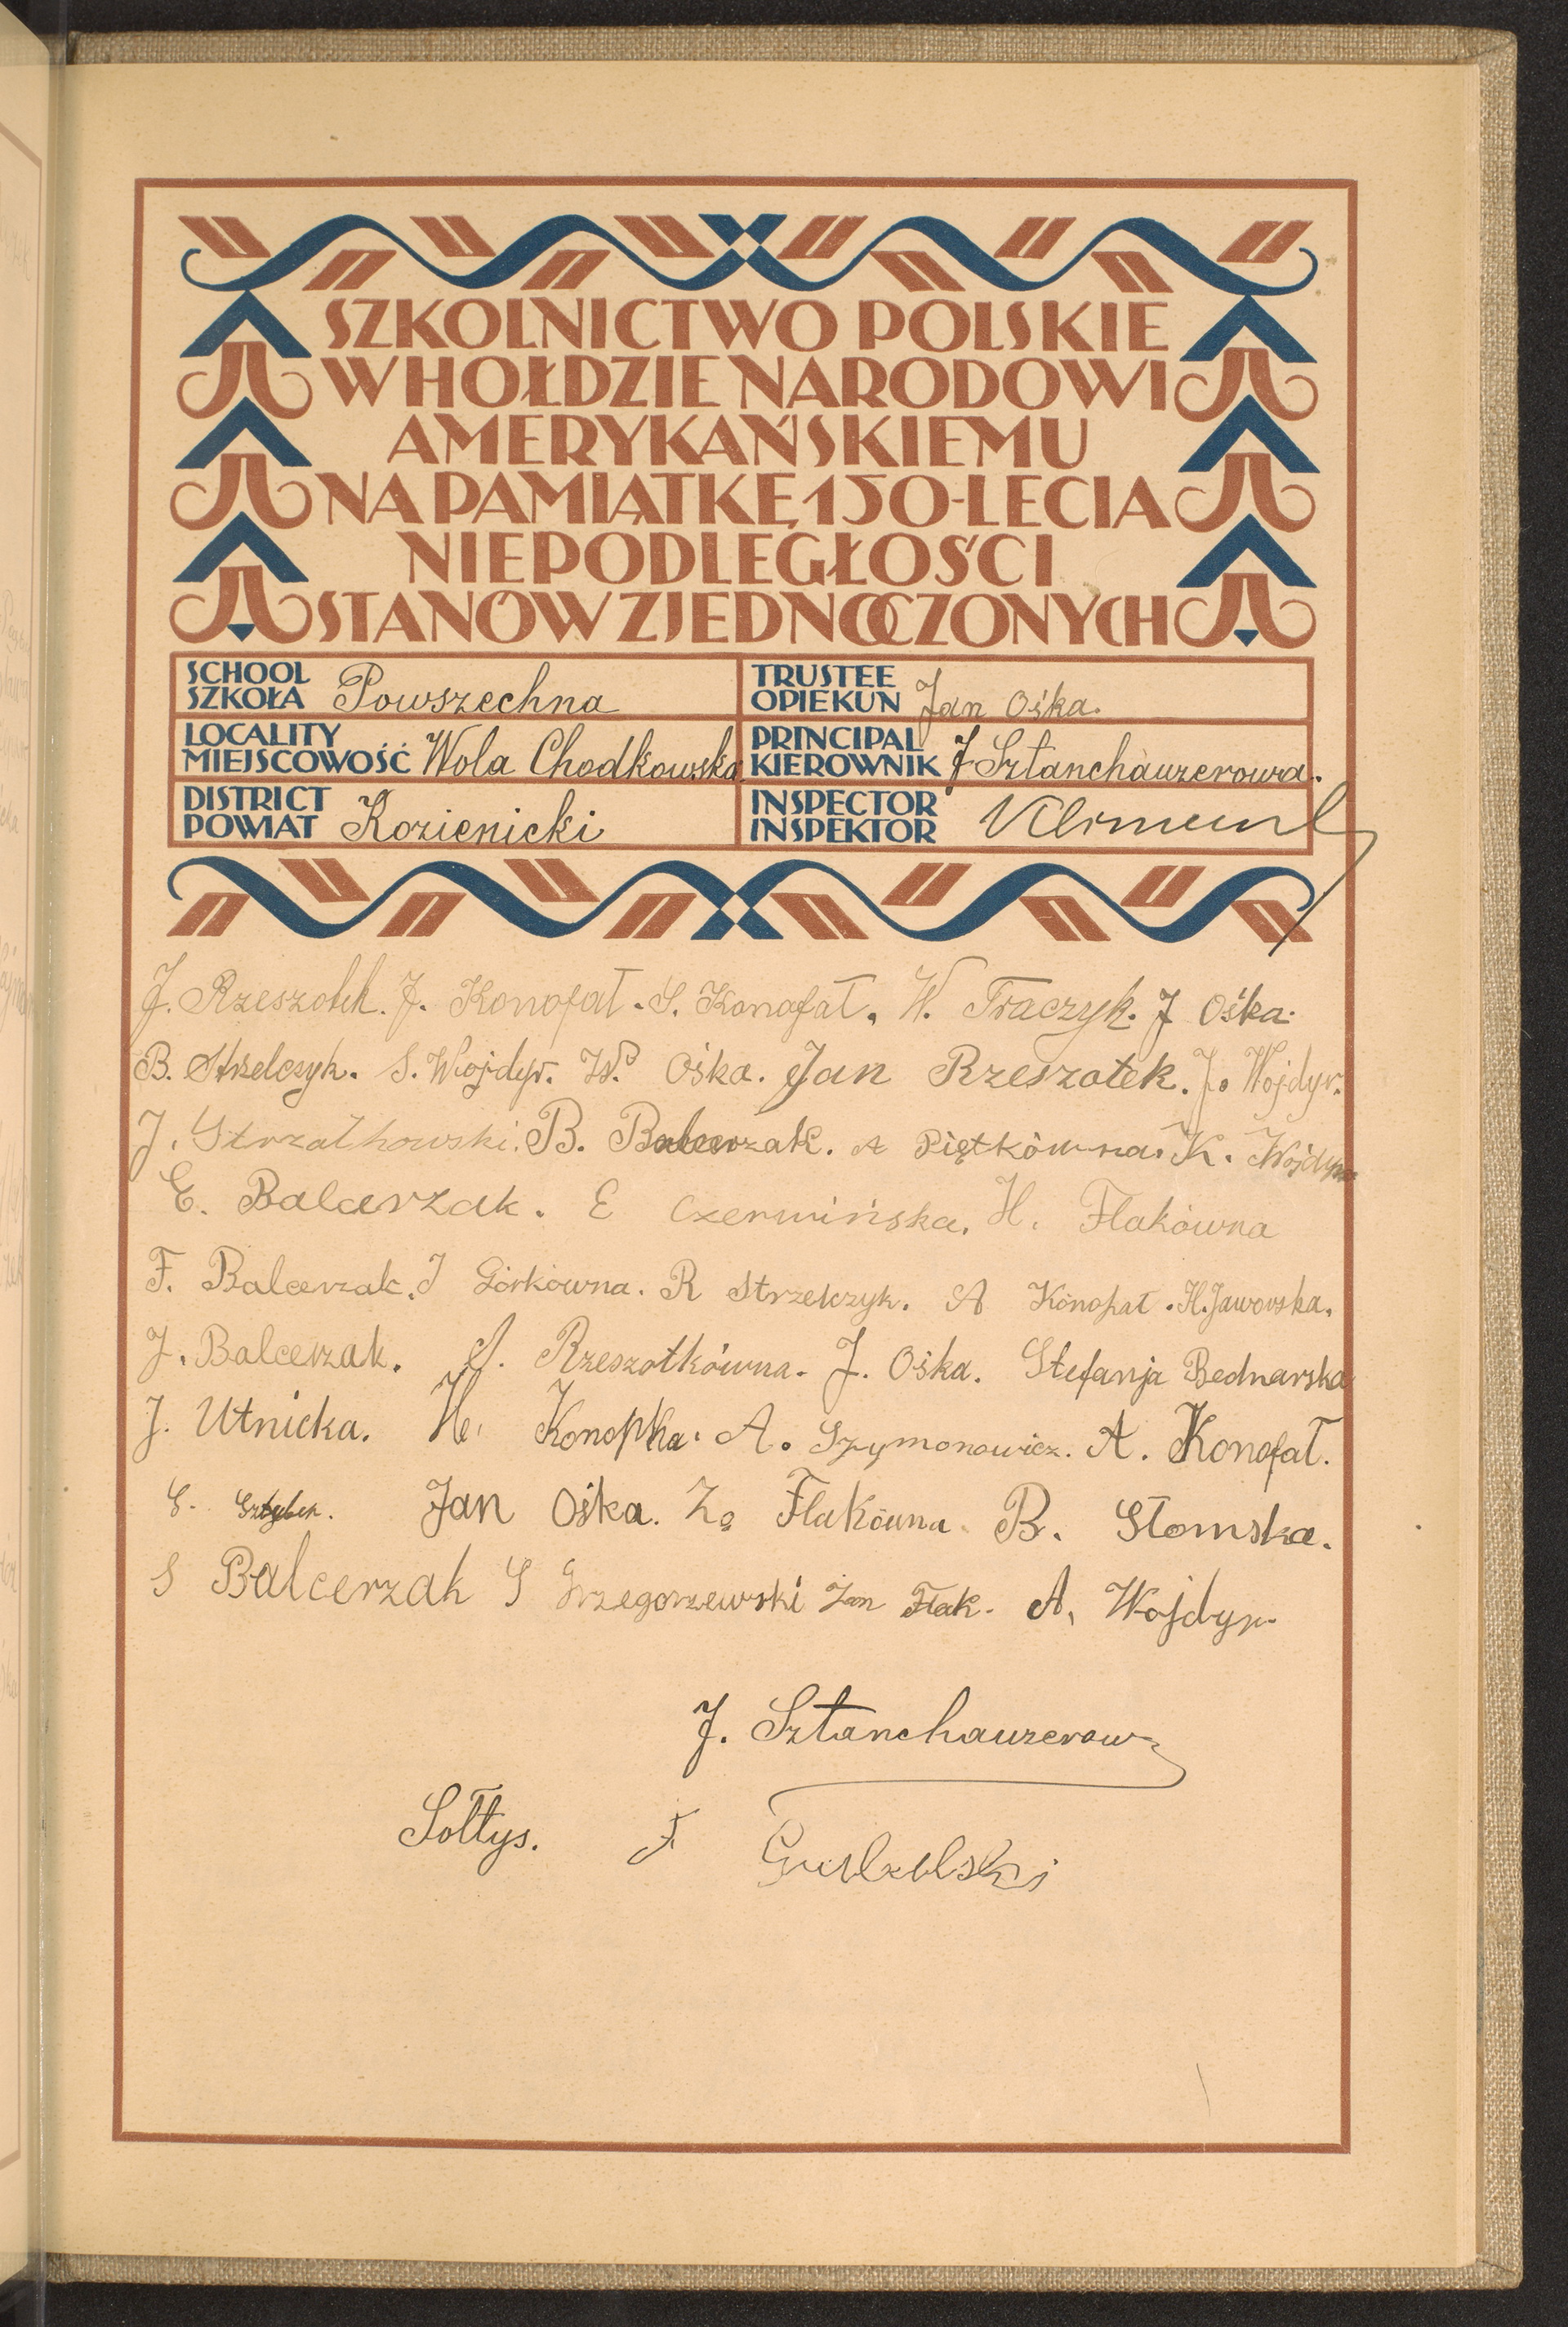 SZKOLNICTWO POLSKIE
W HOŁDZIE NARODOWI
AMERYKAŃSKIEMU
NA PAMIĄTKĘ 150-LECIA
NIEPODLEGŁOŚCI
STANÓW ZJEDNOCZONYCH
SCHOOL SZKOŁA Powszechna
TRUSTEE OPIEKUN Jan Ośka.
LOCALITY MIEJSCOWOŚĆ Wola Chodkowska
PRINCIPAL KIEROWNIK J Sztanchauzerowa.
DISTRICT POWIAT Kozienicki
INSPECTOR INSPEKTOR
J. Rzeszotek. J. Konofał. S. Konafał. W. Traczyk. J Ośka.
B. Strzelczyk. S. Wojdyr. W. Ośka. Jan Rzeszotek. J. Wojdyr.
J. Strzałkowski. B. Balcerzak. A Piętkówna. K. Wojdyr
E. Balcerzak. E Czerwińska. H. Flakówna
F. Balcerzak. J Górkówna. R Strzelczyk. A Konofał. H. Jaworska.
J. Balcerzak. Rzeszotkówna. J. Ośka. Stefanja Bednarska
J. Utnicka. H. Konopka. A. Szymonowicz. A. Konofał.
Jan Ośka. Flakówna. B. Słomska.
S Balcerzak S Grzegorzewski Jan Flak. A. Wojdyr.
J. Sztanchauzerowa
Sołtys. F